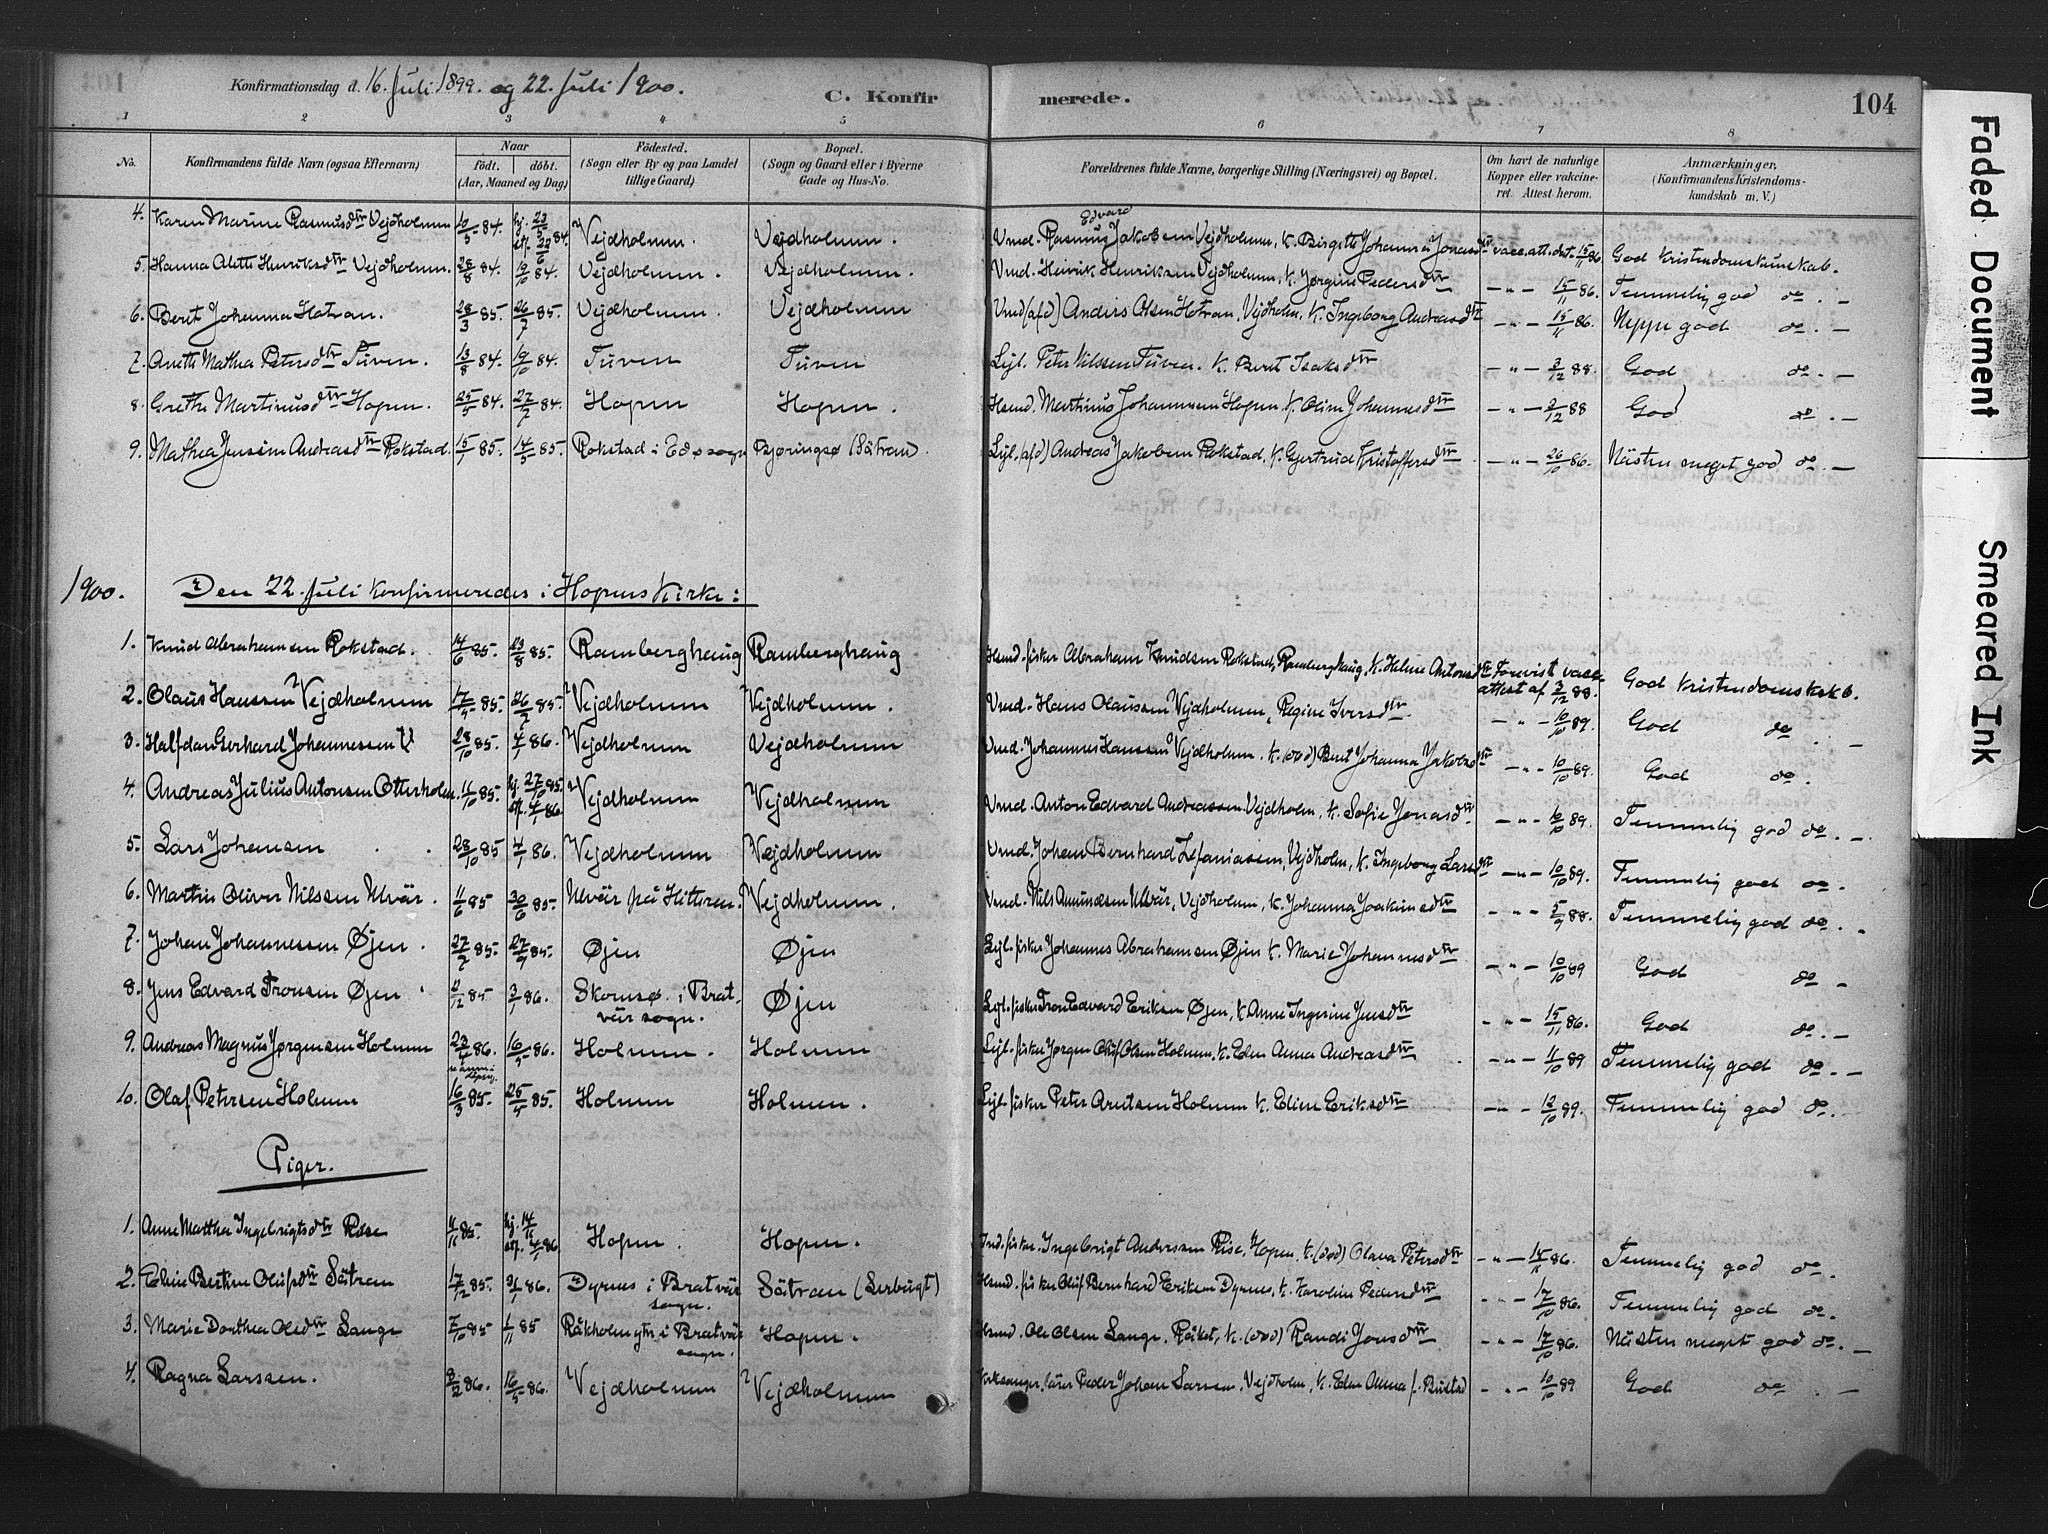 Konfirmationsdag d. 16. Juli 1899. og 22. Juli 1900.
C. Konfirmerede.
104
1 2 3 4 5 6 7 8
No. Konfirmandens fulde Navn (ogsaa Efternavn) Naar født. døbt. (Aar, Maaned og Dag) Fødested. (Sogn eller By og paa Landet tillige Gaard) Bopæl. (Sogn og Gaard eller i Byerne Gade og Hus-No. Forældrenes fulde Navne, borgerlige Stilling (Næringsvei) og Bopæl. Om havt de naturlige Kopper eller vakcineret. Attest herom. Anmærkninger, (Konfirmandens Kristendomskundskab m. V.)
4. Karen Marine Rasmusdtr Vejdholmen 10/5 84. hj. 23/5 stf. 22/6 84. Vejdholmen. Vejdholmen. Vmd. Rasmus Edvard Jakobsen Vejdholmen, K. Birgitte Johanna Jonasdtr vacc. att. dat. 15/11 86. God Kristendomskundskab.
5. Hanna Aletti Henriksdtr Vejdholmen. 28/8 84. 19/10 84. Vejdholmen. Vejdholmen. Vmd. Henrik Henriksen Vejdholmen, K. Jørgine Pedersdtr – " – 15/11 86. Temmelig god do. –
6. Berit Johanna Hotran. 28/3 85. 26/7 85. Vejdholmen. Vejdholmen Vmd (afd) Anders Olsen Hotran, Vejdholm, K. Ingeborg Andreasdtr – " – 15/11 86. Neppe god do. –
7. Anetti Mathea Petersdtr Tuven. 13/8 84. 19/10 84. Tuven Tuven Lejl. Peter Nilssen Tuven. K. Berit Isaksdtr – " – 3/12 88. God do. –
8. Grethe Martinusdtr Hopen. 25/5 84. 27/7 84. Hopen Hopen. Hsmd. Martinus Johannesen Hopen, K. Oline Johannesdtr – " – 2/12 88 God do. –
9. Mathea Jensine Andreasdtr Rokstad. 15/1 85. 14/5 85. Rokstad i Edø sogn Bjøringsø (Sätran). Lejl. (afd) Andreas Jakobsen Rokstad, K. Gjertrud Kristoffersdtr – " – 26/10 86. Nästen meget god do. –
1900. Den 22. Juli konfirmeredes i Hopens Kirke:
1. Knud Abrahamsen Rokstad. 14/6 85. 23/8 85. Ramberghaug Ramberghaug Hsmd. fisker Abraham Knudsen Rokstad, Ramberghaug, K. Heline Antonsdtr Forevist vacc. attest af 3/12 88. God Kristendomskdskb.
2. Olaus Hanssen Vejdholmen 17/5 85. 26/7 85. Vejdholmen Vejdholmen. Vmd. Hans Olaussen Vejdholmen, Regine Iversdtr. – " – 10/10 89. God do. –
3. Halfdan Gerhard Johannessen V 28/10 85. 4/1 86. Vejdholmen Vejdholmen Vmd. Johannes Hanssen Vejdholmen. K. (død) Berit Johanna Jakobsdtr – " – 10/10 89. God do.
4. Andreas Julius Antonsen Otterholm. 11/10 85. hj. 27/10 85. stf. 4/1 86. Vejdholmen Vejdholmen Vmd. Anton Edvard Andreassen Vejdholm, K. Sofie Jonasdtr – " – 10/10 89. Temmelig god do. –
5. Lars Johansen 28/10 85 4/1 86. Vejdholmen Vejdholmen Vmd. Johan Bernhard Zefaniasen, Vejdholm, K. Ingeborg Larsdtr – " – 10/10 89. Temmelig god do.
6. Martin Oliver Nilssen Ulvär. 11/6 85 30/6 85. Ulvär på Hitteren. Vejdholmen. Vmd. Nils Amundsen Ulvär, Vejdholmen, K. Johanna Joakimsdtr – " – 5/9 88. Temmelig god do. –
7. Johan Johannessen Øjen. 27/7 85. 27/9 85. Øjen Øjen Lejl. fisker Johannes Abrahamsen Øjen K. Marie Johannesdtr – " – 10/10 89 God do –
8. Jens Edvard Tronsen Øjen. 2/12 85 3/1 86. Skomsø i Bratvär sogn. Øjen Lejl. fisker Tron Edvard Eriksen Øjen, K. Anne Ingerine Jensdtr – " – 15/11 86. God do. –
9. Andreas Magnus Jørgensen Holmen 23/4 86. 16/5 86. Holmen. Holmen Lejl. fisker Jørgen Oluf Olsen Holmen, K. Edin Anna Andreasdtr – " – 11/10 89 Temmelig god do. –
10. Olaf Petersen Holmen 16/3 85. 25/5 85. Holmen Holmen. Lejl. fisker Peter Arntsen Holmen K. Eline Eriksdtr – " – 12/10 89. Temmelig god do.
Piger.
1. Anne Marthea Ingebrigtsdtr Rise 4/11 85. hj. 14/11 stf. 4/1 86. Hopen. Hopen. Ind. fisker Ingebrigt Anderssen Rise, Hopen, K. (død) Olava Petersdtr – " – 14/11 86. Temmelig god do.
2. Eline Bertine Olufsdtr Sätran 17/12 85. 3/1 86. Dyrnes i Bratvär sogn. Sätran (Serbugt) Hsmd. fisker Oluf Bernhard Eriksen Dyrnes, K. Karoline Pedersdtr – " – 17/10 86. Temmelig god do.
3. Marie Dorthea Olesdtr Lange 7/10 85 1/11 85 Räkholmytr. i Bratvär sogn. Hopen. Hsmd. Ole Olsen Lange, Räket, K. (død) Randi Jonsdtr – " – 17/10 86. Nästen meget god do. –
4. Ragna Larssen. 8/2 86. 16/5 86. Vejdholmen Vejdholmen Kirksanger, lärer Peder Johan Larsen, Vejdholm, K. Edin Anna f. Bustad – " – 10/10 89 God do. –
Faded Document
Smeared Ink